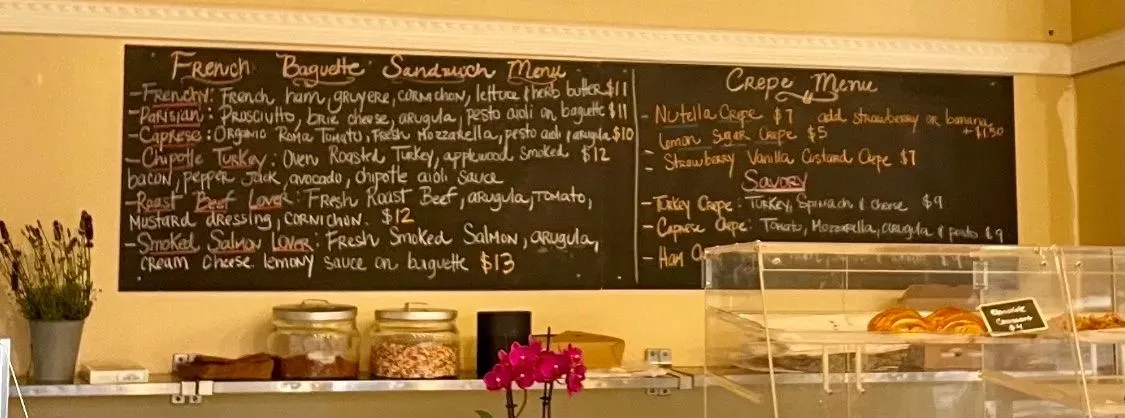 French Baguette Sandwich Menu
- Frenchy: French ham gruyere, cornichon, lettuce & herb butter $11
- Parisian: Prosciutto, brie cheese, arugula, pesto aioli on baguette $11
- Caprese: Organic Roma Tomato, Fresh Mozzarella, pesto aioli & arugula $10
- Chipotle Turkey: Oven Roasted Turkey, applewood smoked $12
bacon, pepper Jack, avocado, chipotle aioli sauce
- Roast Beef Lover: Fresh Roast Beef, arugula, Tomato,
Mustard dressing, cornichon. $12
- Smoked Salmon Lover: Fresh Smoked Salmon, arugula,
cream cheese lemony sauce on baguette $13
Crepe Menu
- Nutella Crepe $7 add strawberry or banana
+ $1.50
- Lemon Sugar Crepe $5
- Strawberry Vanilla Custard Crepe $7
Savory
- Turkey Crepe: Turkey, Spinach & cheese $9
- Caprese Crepe: Tomato, Mozzarella, arugula & pesto $9
- Ham
Chocolate
Croissant
$4